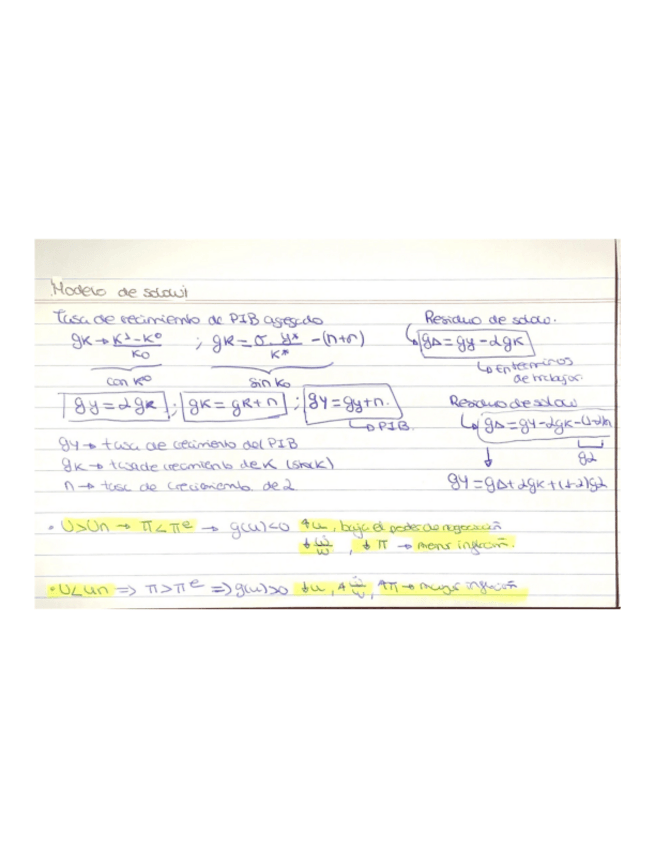 Modelo de solow
Tasa de crecimiento de PIB agregado
gk → k¹-k⁰/k₀ ; gk = σ. y*/k* -(n+σ)
con k⁰ sin k₀
gy = αgk ; gK = gk + n ; gY = gy + n.
↳ PIB.
gY → tasa de crecimiento del PIB
gK → tasa de crecimiento de K (stock)
n → tasa de crecimiento de L
Residuo de solow.
↳ gA = gy - αgk
↳ En terminos de trabajador.
Residuo de solow
↳ gA = gY - αgK - (1-α)n
gL
↓ gY = gA + αgK + (1-α)gL
• U>Un → π<πᵉ → g(u)<0 ↑u, baja el poder de negociación
↓ ẇ/w , ↓π → menor inflación.
• U<Un ⇒ π>πᵉ ⇒ g(u)>0 ↓u, ↑ẇ/w, ↑π → mayor inflación